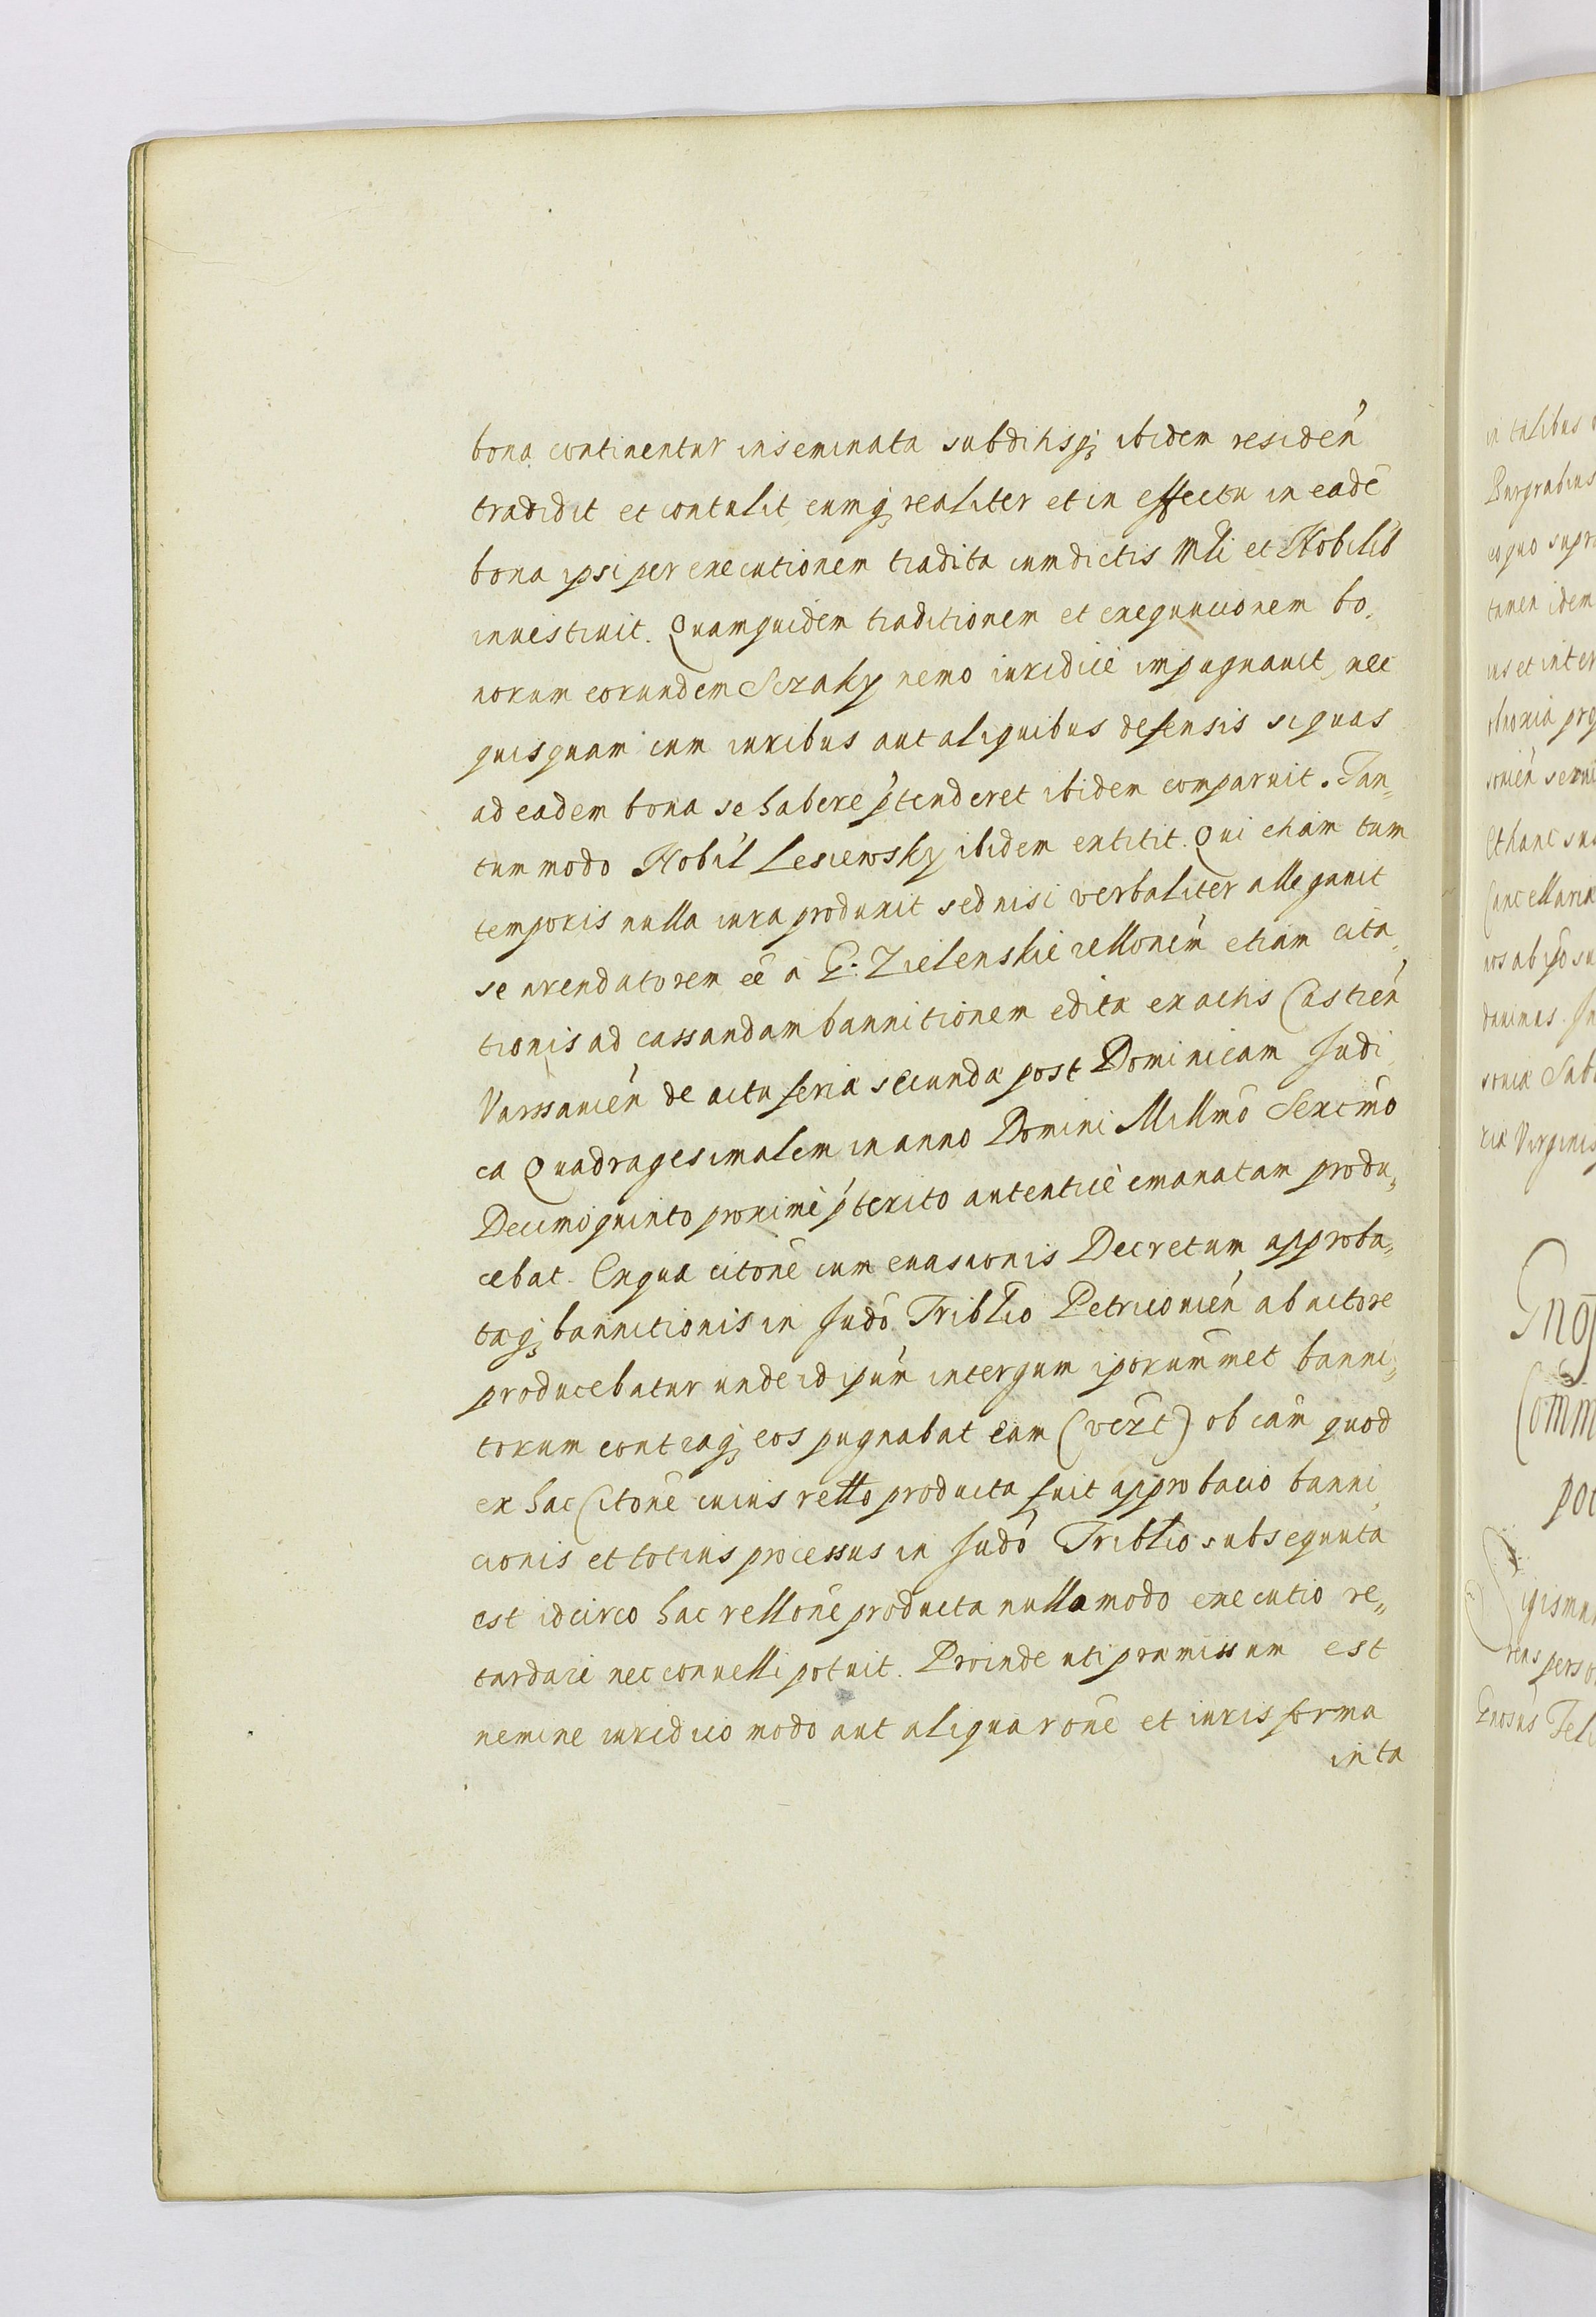 bona continentur inseminata subditisq; ibidem residen̄
tradidit et contulit, eumq; realiter et in effectu in eadē
bona ipsi per executionem tradita cum dictis Mli et Nobilib
inuestiuit. Quamquidem traditionem et exequucionem bo,
norum eorundem Sczaky nemo iuridicè impugnauit, nec
quisquam cum iuribus aut aliquibus defensis si quas
ad eadem bona se habere p̃tenderet ibidem comparuit. Tan„
tum modo Nobil Lesiewsky ibidem extitit. Qui etiam tum
temporis nulla iura produxit sed nisi verbaliter allegauit
se arendatorem eē à G: Zielenskie rellonem̄ etiam cita,
tionis ad cassandam bannitionem edita ex actis Castren̄
Varssauien̄ de actu feria secunda post Dominicam Judi,
ca Quadragesimalem in anno Domini Millmō Sexcmō
Decimo quinto proximè p̃terito autenticè emanatam produ„
cebat. Ex qua citonē cum euasionis Decretum approba„
taq; bannitionis in Judō Triblio Petricouien̄ ab actore
producebatur unde id ipūm intergum iporum̄met banni„
torum contraq; eos pugnabat eam (verż) ob cam̄ quod
ex hac Citonē cuius retto producta fuit approbacio banni,
cionis et totius processus in Judō Triblio subsequuta
est idcirco hac rellonē producta nulla modo executio re„
tardari nec conuelli potuit. Proinde uti pramissum est
nemine iuridico modo aut aliqua ronē et iuris forma
in ta
in talibus
Burgrabius
eoquo supr
tamen idem
ius et inter
sonien̄ serui
Et hanc su
Cancellaria
uos ab ipō su
Virginis
Comm
per so